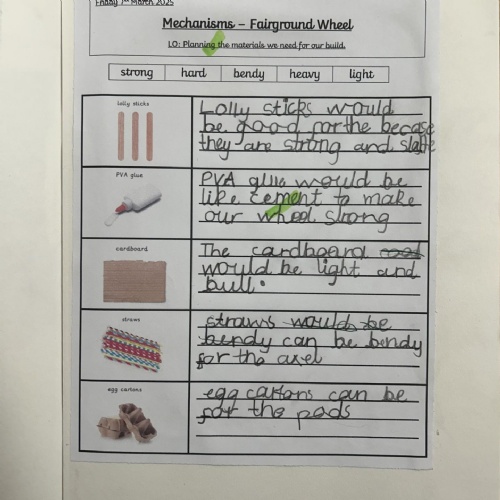 Friday 7th March 2025
Mechanisms – Fairground Wheel
LO: Planning the materials we need for our build.
strong hard bendy heavy light
lolly sticks
Lolly sticks would
be good for the becase
they are strong and
PVA glue
PVA glue would be
like cement to make
our wheel strong
cardboard
The cardboard
would be light and
bull.
straws
straws would be
bendy can be bendy
for the axel
egg cartons
egg cartons can be
for the pods